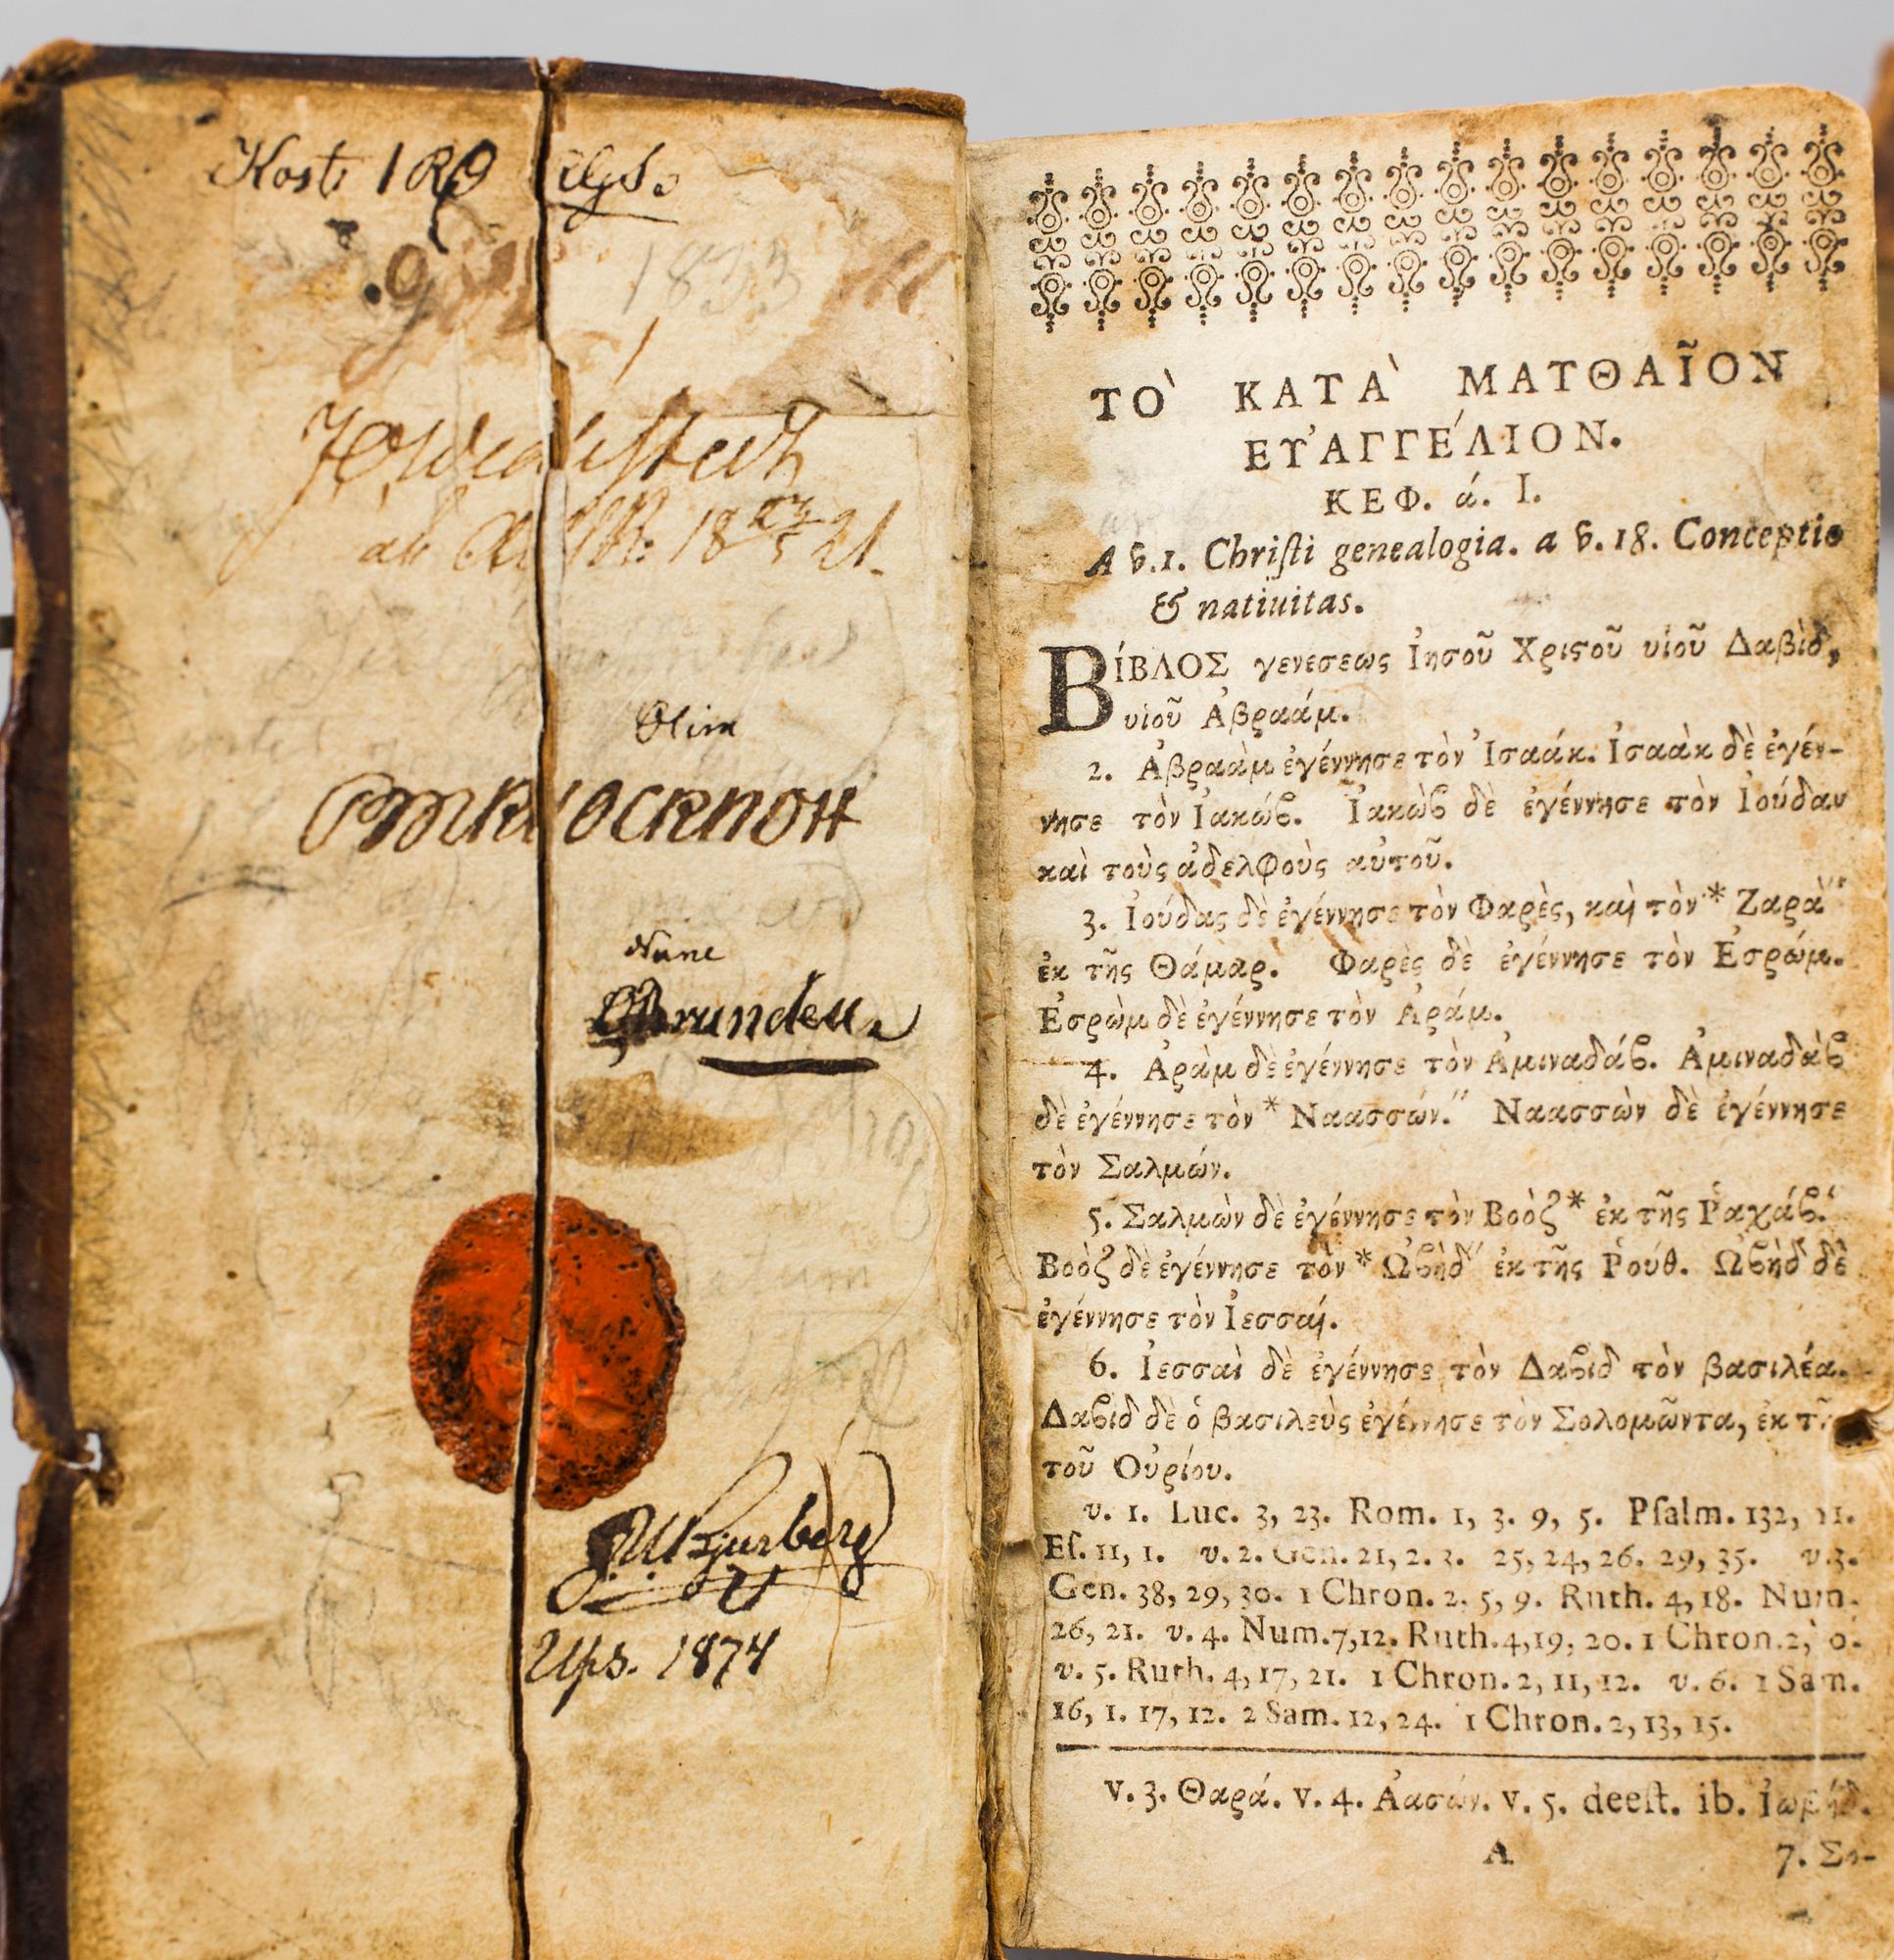 Kost: 180
1833
18 21.
Olim
Nunc
Brundell
Ups. 1874
ΤΟ` ΚΑΤΑ` ΜΑΤΘΑΪ͂ΟΝ
ΕΥ᾿ΑΓΓΕ´ΛΙΟΝ.
ΚΕΦ. ά. I.
A v.1. Chriſti genealogia. a v. 18. Conceptio
& natiuitas.
ΒΊΒΛΟΣ γενεσεως Ἰησοῦ Χριϛοῦ υἱοῦ Δαβὶδ,
υἱοῦ Ἀβραάμ.
2. Ἀβραὰμ ἐγέννησε τὸν Ἰσαάκ. Ἰσαὰκ δὲ ἐγέν-
νησε τὸν Ἰακώβ. Ἰακὼβ δὲ ἐγέννησε τὸν Ἰούδαν
καὶ τοὺς ἀδελφοὺς αὐτοῦ.
3. Ἰούδας δὲ ἐγέννησε τὸν Φαρὲς, καὶ τὸν * Ζαρὰ"
ἐκ τῆς Θάμαρ. Φαρὲς δὲ ἐγέννησε τὸν Ἐσρώμ.
Ἐσρὼμ δὲ ἐγέννησε τὸν Ἀράμ.
4. Ἀρὰμ δὲ ἐγέννησε τὸν Ἀμιναδάβ. Ἀμιναδὰβ
δὲ ἐγέννησε τὸν * Ναασσών." Ναασσὼν δὲ ἐγέννησε
τὸν Σαλμών.
5. Σαλμὼν δὲ ἐγέννησε τὸν Βοὸζ * ἐκ τῆς Ῥαχάβ."
Βοὸζ δὲ ἐγέννησε τὸν * Ὠβὴδ" ἐκ τῆς Ῥούθ. Ὠβὴδ δὲ
ἐγέννησε τὸν Ἰεσσαί.
6. Ἰεσσαὶ δὲ ἐγέννησε τὸν Δαβὶδ τὸν βασιλέα.
Δαβὶδ δὲ ὁ βασιλεὺς ἐγέννησε τὸν Σολομῶντα, ἐκ
τοῦ Οὐρίου.
v. 1. Luc. 3, 23. Rom. 1, 3. 9, 5. Pſalm. 132, 11.
Eſ. 11, 1. v. 2. Gen. 21, 2. 3. 25, 24, 26. 29, 35. v. 3.
Gen. 38, 29, 30. 1 Chron. 2, 5, 9. Ruth. 4, 18. Num.
26, 21. v. 4. Num. 7, 12. Ruth. 4, 19, 20. 1 Chron. 2,
v. 5. Ruth. 4, 17, 21. 1 Chron. 2, 11, 12. v. 6. 1 Sam.
16, 1. 17, 12. 2 Sam. 12, 24. 1 Chron. 2, 13, 15.
v. 3. Θαρά. v. 4. Ἀασών. v. 5. deeſt. ib. Ἰωβήδ.
A
7. Σο-